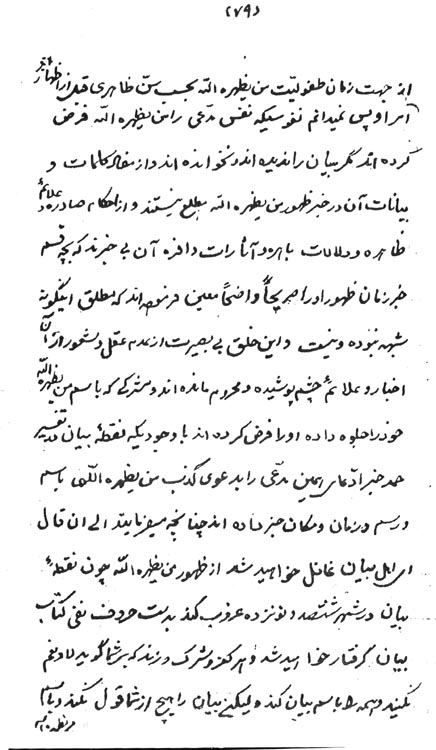 (٢٧٩
از جهت زمان طفولیت من یظهره الله بحسب سن ظاهری قبل از اظهار امر
امر او پس نمیدانم نفوسیکه نفس مدعی را من یظهره الله فرض
کرده اند مگر بیان را ندیده اند و نخوانده اند از مفاد کلمات و
بیانات آن در خبر ظهور من یظهره الله مطلع نیستند و از احکام صادره و علائم
ظاهره و دلالات باهره و آثارات وافره آن بی خبرند که بچه قسم
خبر زمان ظهور او را صریحاً واضحاً معین فرموده اند که مطلق اینگونه
شبهه نبوده و نیست و این خلق بی بصیرت از عدم عقل و شعور از آن
اخبار و علائم چشم پوشیده و محروم مانده اند و مشرکی که باسم من یظهره الله
خود را جلوه داده او را فرض کرده اند با وجودیکه نقطهٔ بیان در تفسیر
حمد خبر ادعای همین مدعی را بدعوی کذب من یظهره اللهی باسم
و رسم و زمان و مکان خبر داده اند چنانچه میفرمایند الی ان قال
ای اهل بیان غافل خواهید شد از ظهور من یظهره الله چون نقطهٔ
بیان در شهر ششصد و نوزده غروب کند بدست حروف نفی کتاب
بیان گرفتار خواهید شد و هر کفر و شرک ورزند که بر شما گویند لا و نعم
نکنید و همه را باسم بیان کنند و لیکن بیان را هیچ از شما قبول نکنند و باسم